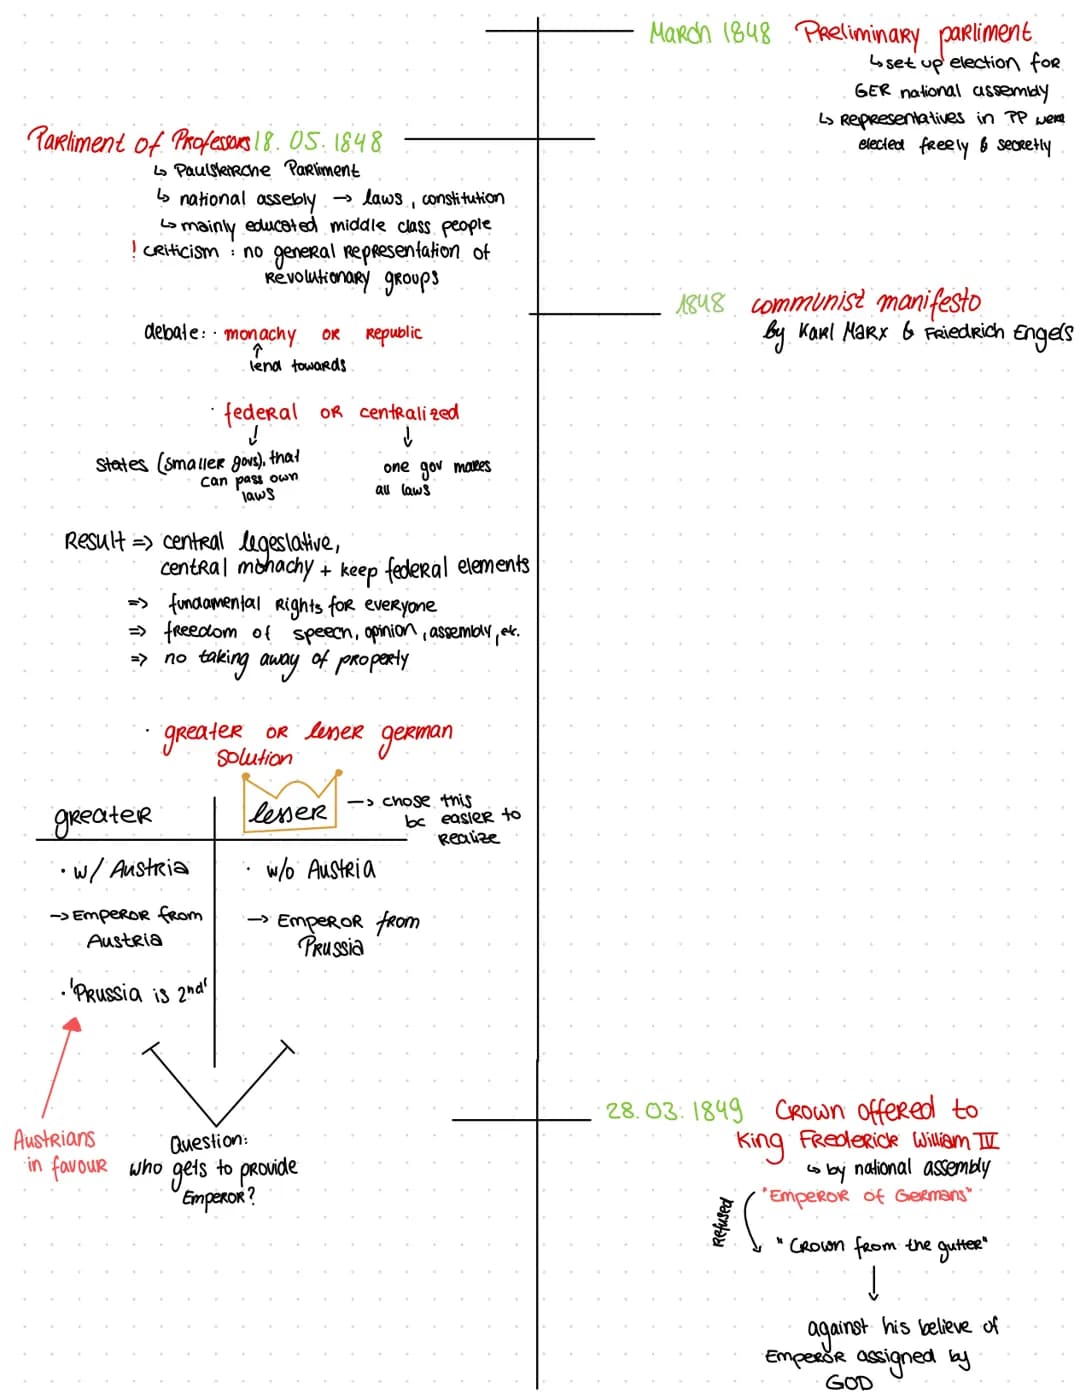 March 1848 Preliminary parliment
↳ set up election for
GER national assembly
↳ Representatives in PP were
elected freely & secretly
Parliment of Professors 18. 05. 1848
↳ Paulskirche Parliment
↳ national assebly → laws, constitution
↳ mainly educated middle class people
! criticism : no general representation of
Revolutionary groups
1848 communist manifesto
by Karl Marx & Friedrich Engels
debate: · monachy or Republic
↑
lend towards
· federal or centralized
↓ ↓
States (smaller govs), that
can pass own
laws
one gov makes
all laws
Result => central legeslative,
central monachy + keep federal elements
=> fundamental rights for everyone
=> freedom of speech, opinion, assembly, etc.
=> no taking away of property
· greater or lesser german
solution
greater
lesser
→ chose this
bc easier to
realize
· w/ Austria
→ Emperor from
Austria
· 'Prussia is 2nd'
· w/o Austria
→ Emperor from
Prussia
Austrians
in favour
Question:
who gets to provide
Emperor?
28. 03. 1849 Crown offered to
King Frederick William IV
↳ by national assembly
"Emperor of Germans"
Refused
"Crown from the gutter"
↓
against his believe of
Emperor assigned by
GOD